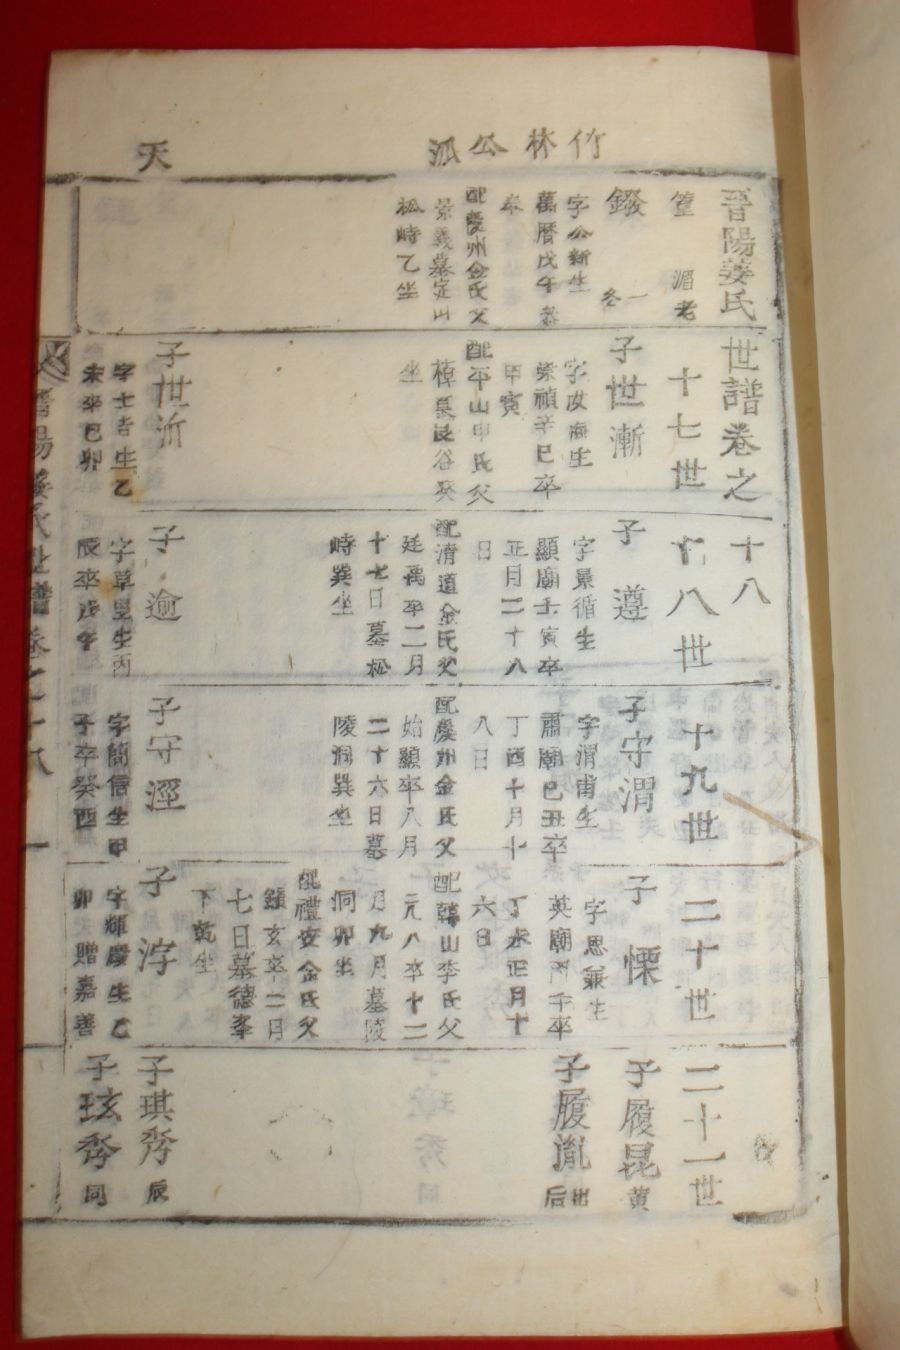 竹林公派
天
晉陽姜氏世譜卷之十八
湄老
十七世
十八世
十九世
二十世
二十一世
一
冬
字公新生
萬曆戊午
卒
配慶州金氏父
景義墓定山
松峙乙坐
子世漸
字汝進生
崇禎辛巳卒
甲寅
配平山申氏父
坐
子世沂
字士吉生乙
未卒己卯
子遵
字景循生
顯廟壬寅卒
正月二十八
日
配清道金氏父
廷禹卒二月
十七日墓松
峙巽坐
子逾
字草里生丙
辰卒戊午
子守渭
字渭甫生
肅廟己丑卒
丁酉十月十
八日
配慶州金氏父
始顯卒八月
二十六日墓
陵洞巽坐
子守涇
字簡信生甲
子卒癸酉
子慄
字思兼生
英廟丙子卒
丁未正月十
六日
配韓山李氏父
元八卒十二
月九月墓陵
洞卯坐
配禮安金氏父
鎮玄卒二月
七日墓德峯
下乾坐
子浡
字輝慶生乙
卯贈嘉善
子履昆黃
子履胤出后
子琪秀辰
子玹秀同
晉陽姜氏世譜卷之十八 一